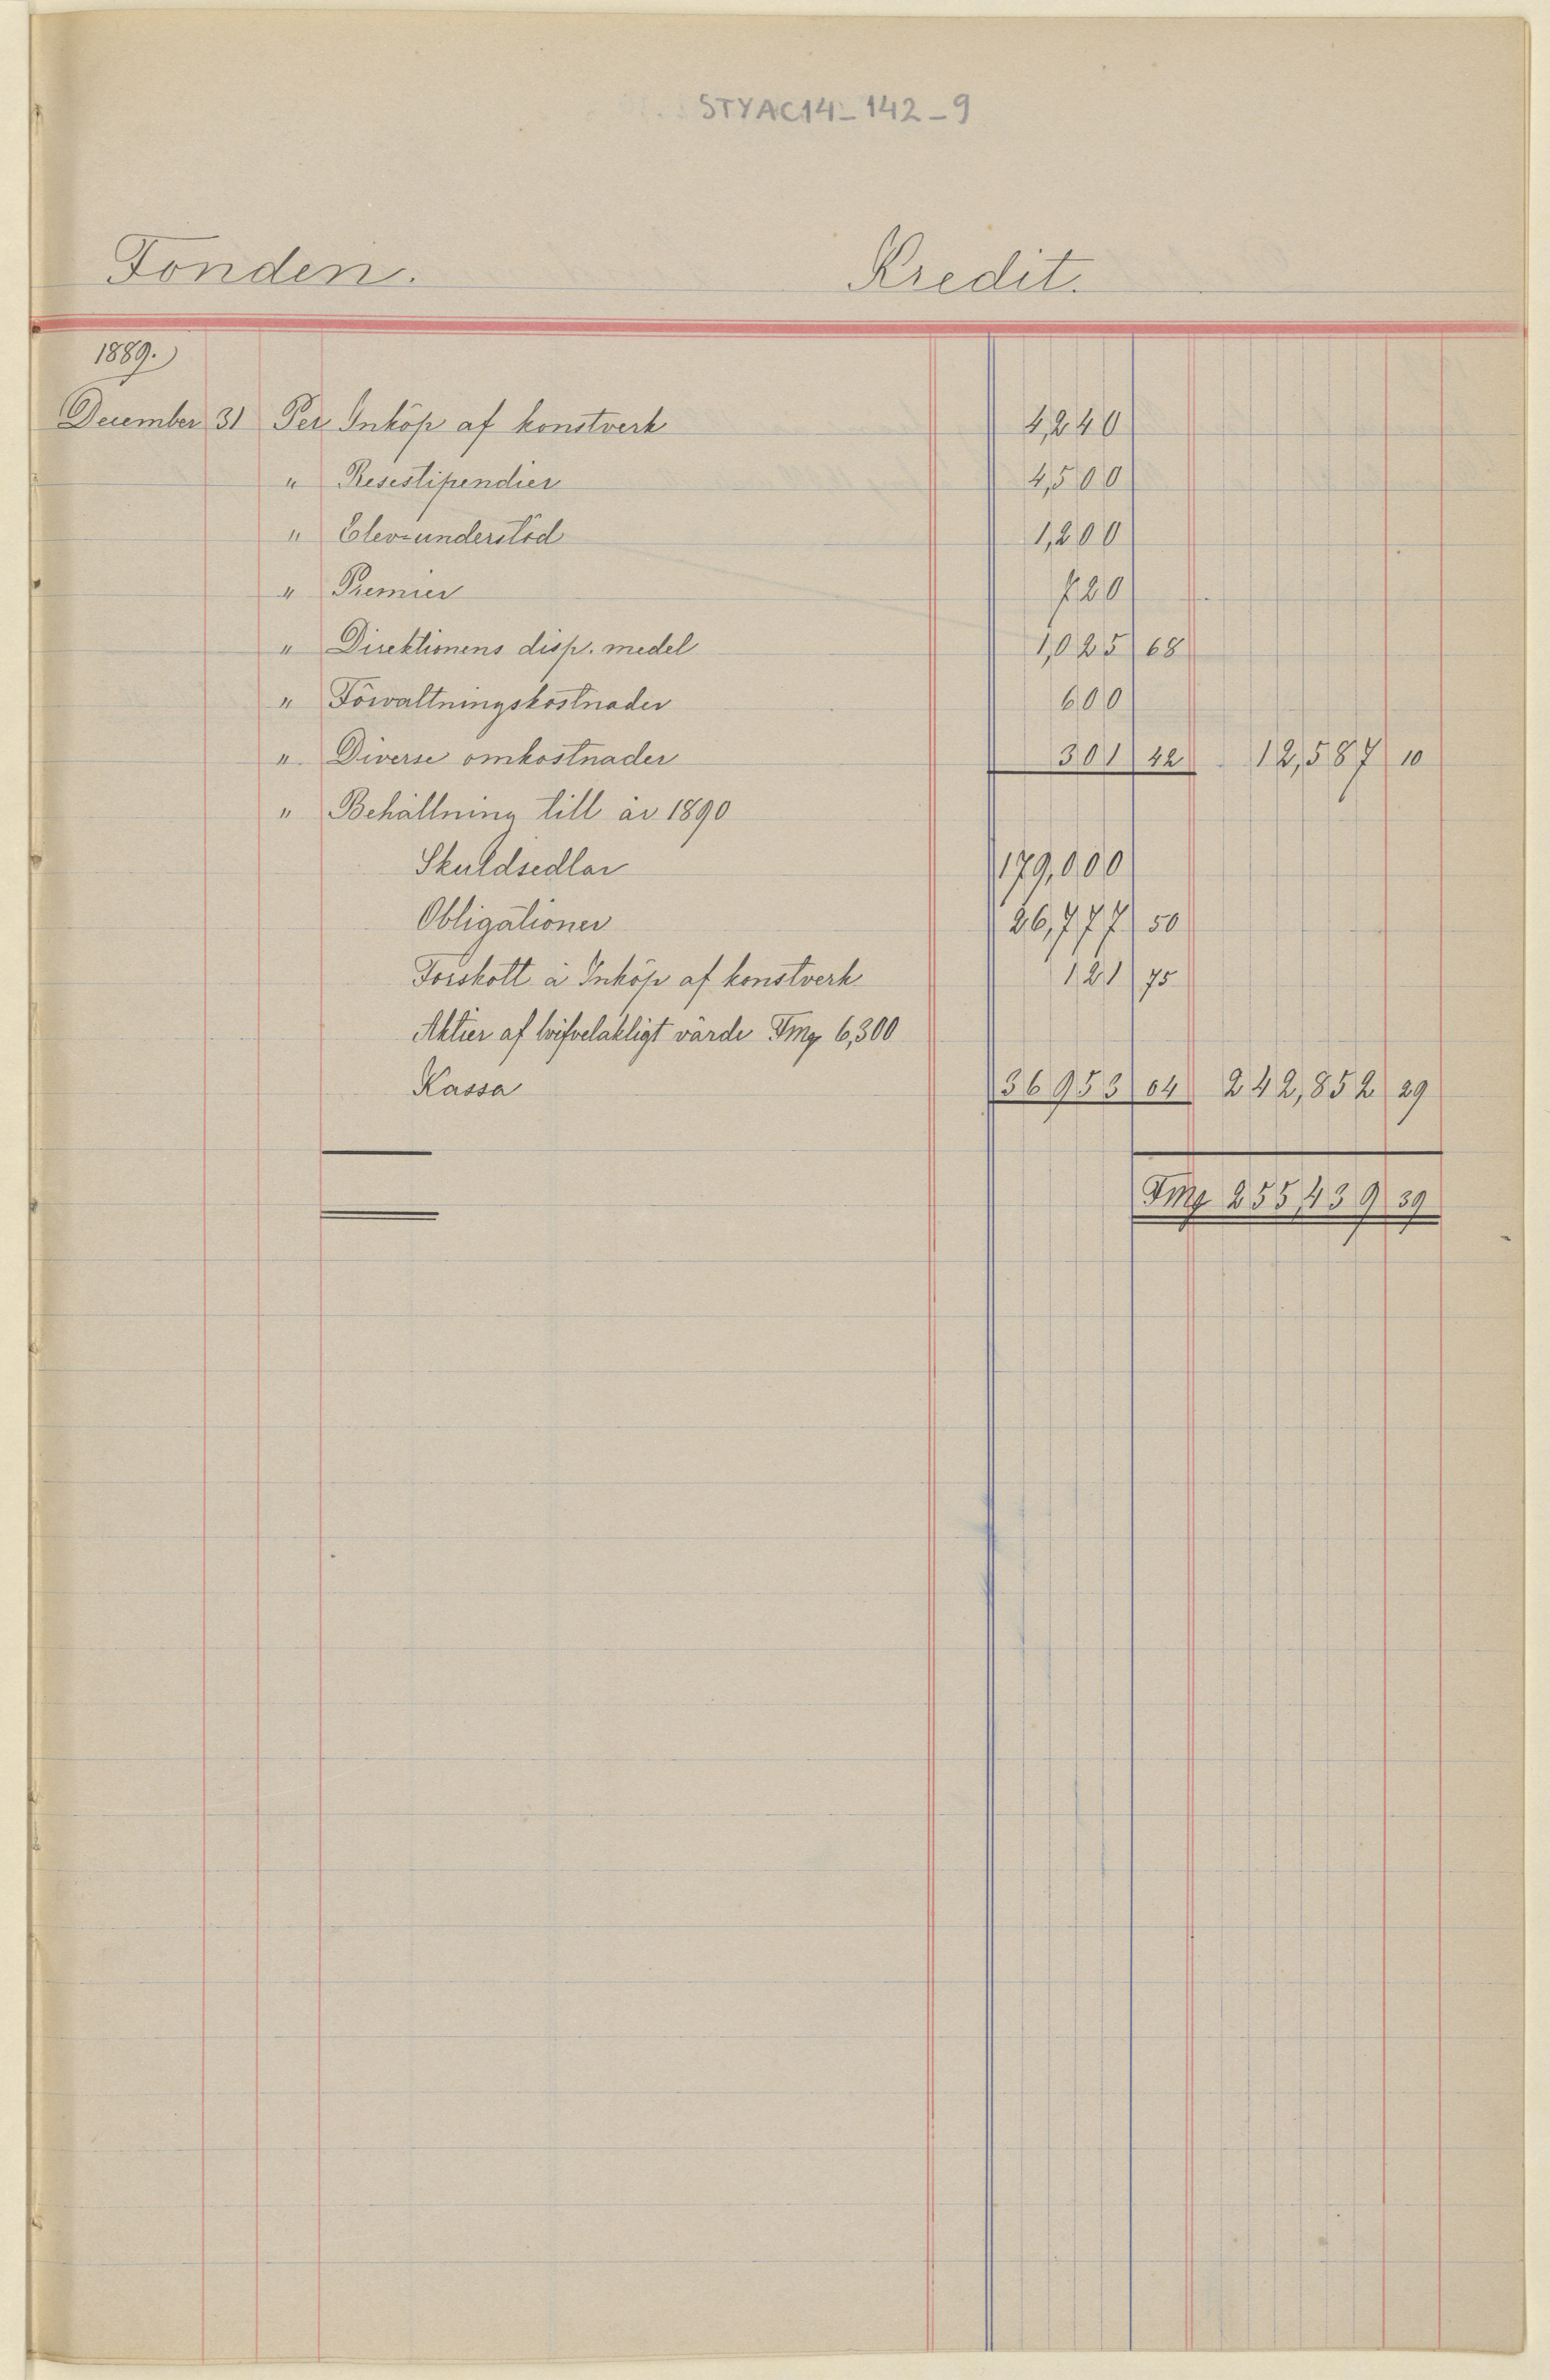 STYAC14_142_9
Fonden. Kredit.
1889.
December 31 Per Inköp af konstverk 4,240
" Resestipendier 4,500
" Elev-understöd 1,200
" Premier 720
" Direktionens disp. medel 1,025 68
" Förvaltningskostnader 600
" Diverse omkostnader 301 42 12,587 10
" Behållning till år 1890
Skuldsedlar 179,000
Obligationer 26,777 50
Förskott å Inköp af konstverk 121 75
Aktier af tvifvelaktigt värde Fmg 6,300
Kassa 36953 04 242,852 29
Fmg 255,439 39